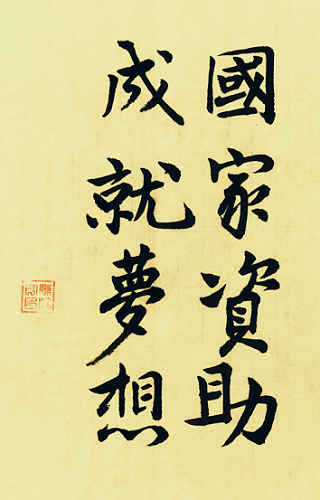 國家資助
成就夢想